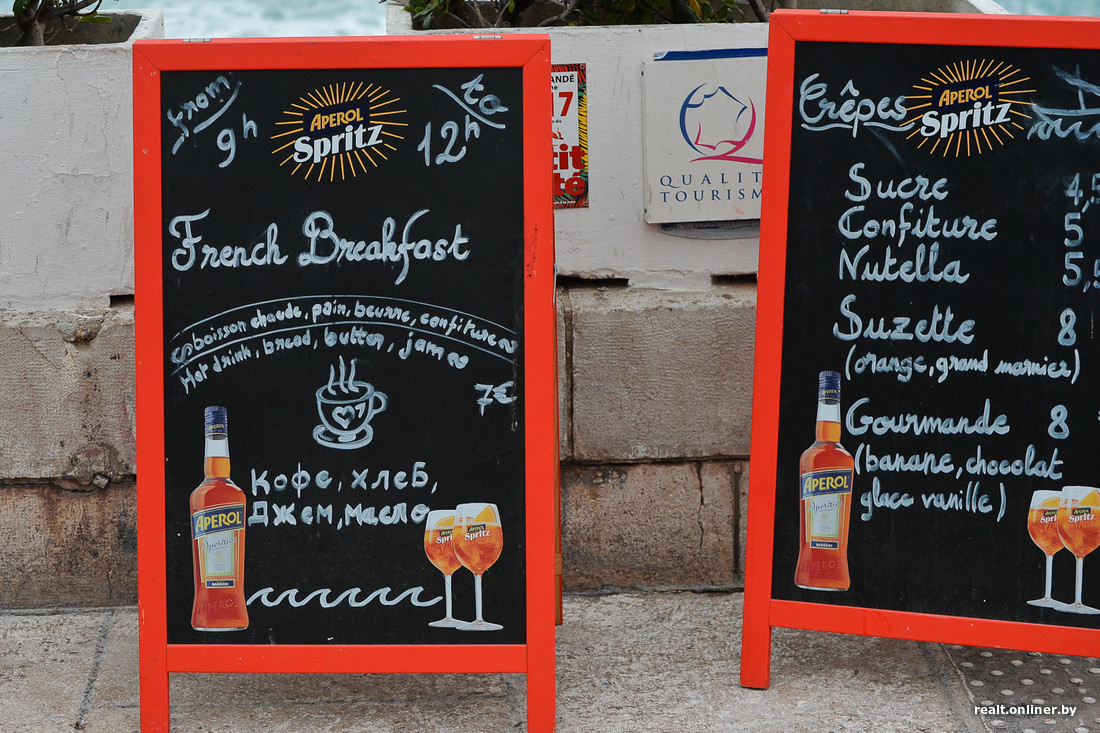 from
9h
APEROL
Spritz
to
12h
French Breakfast
boisson chaude, pain, beurre, confiture
Hot drink, bread, butter, jam
7€
Кофе, хлеб,
Джем, масло
APEROL
Aperitivo
BARBIERI
APEROL
APEROL
Spritz
17
QUALITÉ
TOURISME
Crêpes
APEROL
Spritz
Sucre 4,5
Confiture 5
Nutella 5,5
Suzette 8
(orange, grand marnier)
Gourmande 8
(banane, chocolat
glace vanille)
APEROL
BARBIERI
APEROL
APEROL
Spritz
realt.onliner.by